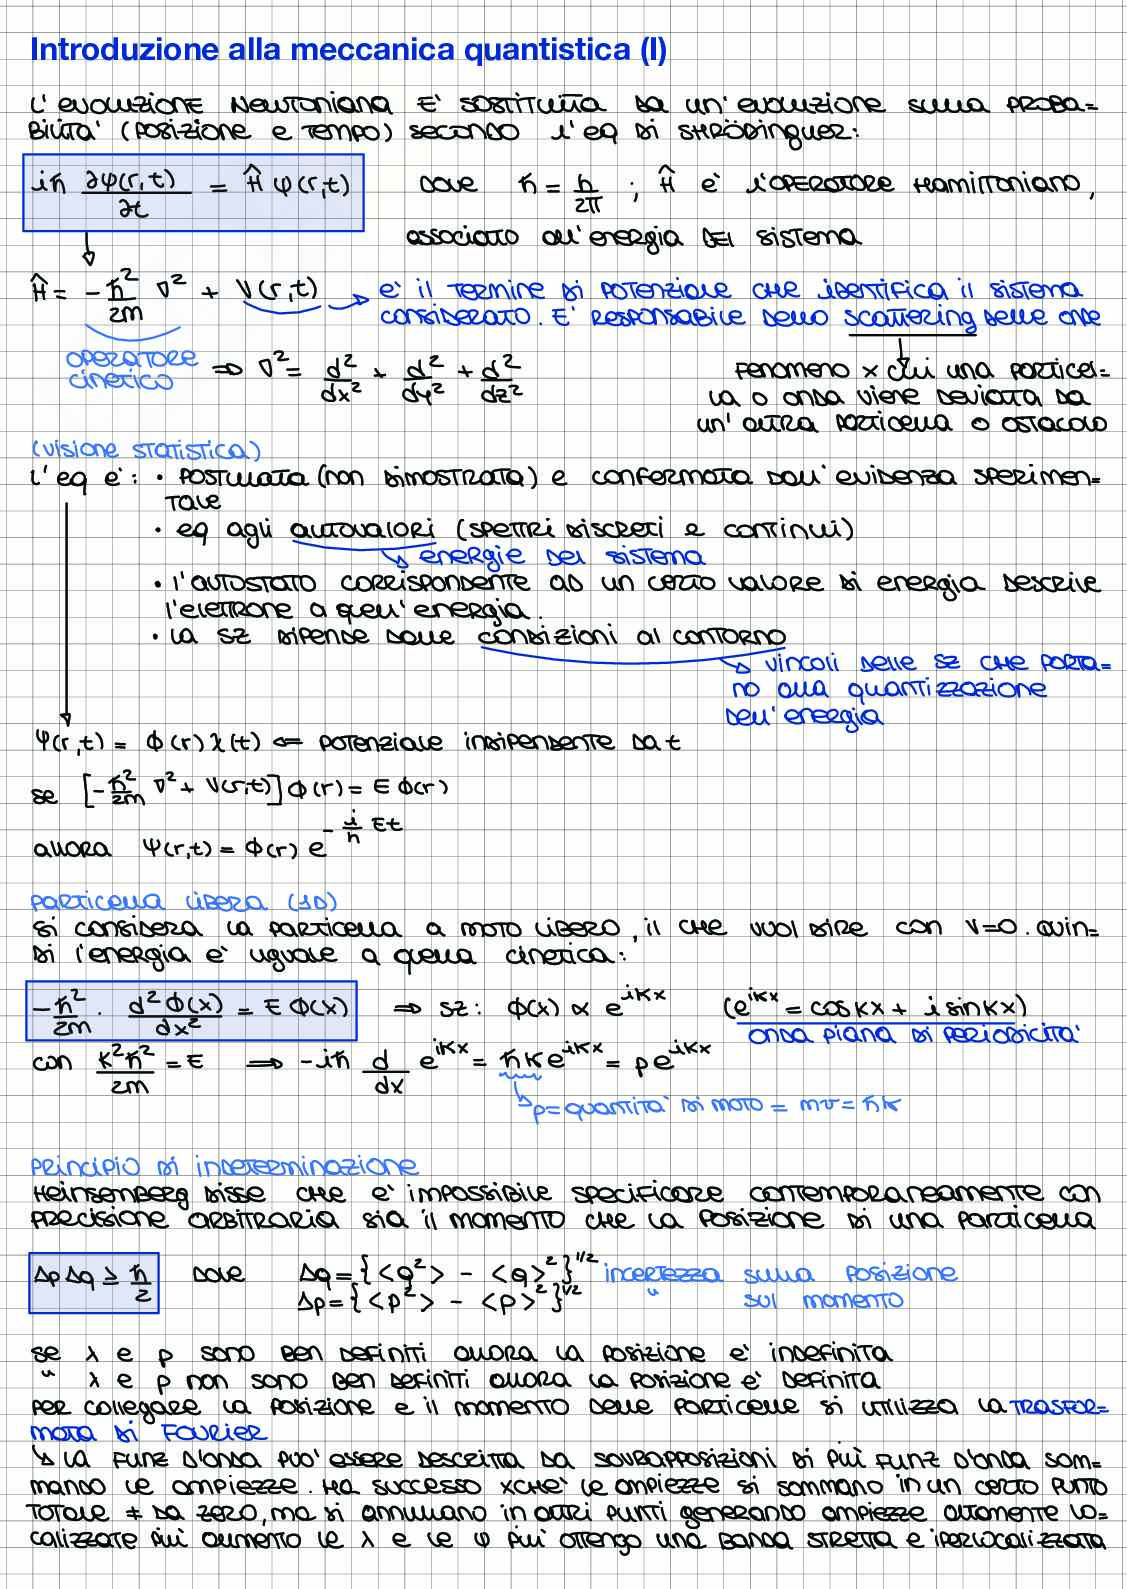 Introduzione alla meccanica quantistica (I)
L'evoluzione Newtoniana è sostituita da un'evoluzione sulla proba=
bilità (posizione e tempo) secondo l'eq di Shrödinguer:
iℏ ∂φ(r,t)/∂t = Ĥ φ(r,t) dove ℏ = h/2π ; Ĥ è l'operatore Hamiltoniano,
associato all'energia del sistema
Ĥ = -ℏ²/2m ∇² + V(r,t) → è il termine di potenziale che identifica il sistema
considerato. È responsabile dello scattering delle onde
operatore
cinetico
⇒ ∇² = d²/dx² + d²/dy² + d²/dz²
fenomeno x cui una particel=
la o onda viene deviata da
un'altra particella o ostacolo
(visione statistica)
L'eq è: • postulata (non dimostrata) e confermata dall'evidenza sperimen=
tale
• eq agli autovalori (spettri discreti e continui)
↳ energie del sistema
• l'autostato corrispondente ad un certo valore di energia descrive
l'elettrone a quell'energia.
• la sz dipende dalle condizioni al contorno
↳ vincoli delle sz che porta=
no alla quantizzazione
dell'energia
Ψ(r,t) = ϕ(r)χ(t) ⇐ potenziale indipendente da t
se [-ℏ²/2m ∇² + V(r,t)]ϕ(r) = E ϕ(r)
allora Ψ(r,t) = ϕ(r) e^(-i/ℏ Et)
Particella libera (1D)
Si considera la particella a moto libero, il che vuol dire con V=0. Quin=
di l'energia è uguale a quella cinetica:
-ℏ²/2m · d²ϕ(x)/dx² = E ϕ(x) ⇒ sz: ϕ(x) ∝ e^(iKx) (e^(iKx) = cos Kx + i sin Kx)
onda piana di periodicità
con K²ℏ²/2m = E ⇒ -iℏ d/dx e^(iKx) = ℏK e^(iKx) = p e^(iKx)
↳ p = quantità di moto = mv = ℏK
Principio di indeterminazione
Heinsenberg disse che è impossibile specificare contemporaneamente con
precisione arbitraria sia il momento che la posizione di una particella
Δp Δq ≥ ℏ/2 dove Δq = {<q²> - <q>²}^1/2 incertezza sulla posizione
Δp = {<p²> - <p>²}^1/2 " sul momento
se λ e p sono ben definiti allora la posizione è indefinita
" λ e p non sono ben definiti allora la posizione è definita
Per collegare la posizione e il momento delle particelle si utilizza la trasfor=
mata di Fourier
↳ la funz d'onda può essere descritta da sovrapposizioni di più funz d'onda som=
mando le ampiezze. Ha successo xchè le ampiezze si sommano in un certo punto
totale ≠ da zero, ma si annullano in altri punti generando ampiezze altamente lo=
calizzate più aumento le λ e le φ più ottengo una banda stretta e iperlocalizzata